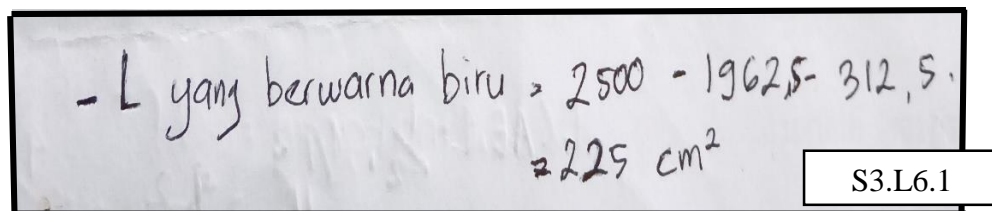 - L yang berwarna biru = 2500 - 1962,5 - 312,5.
= 225 cm²
S3.L6.1